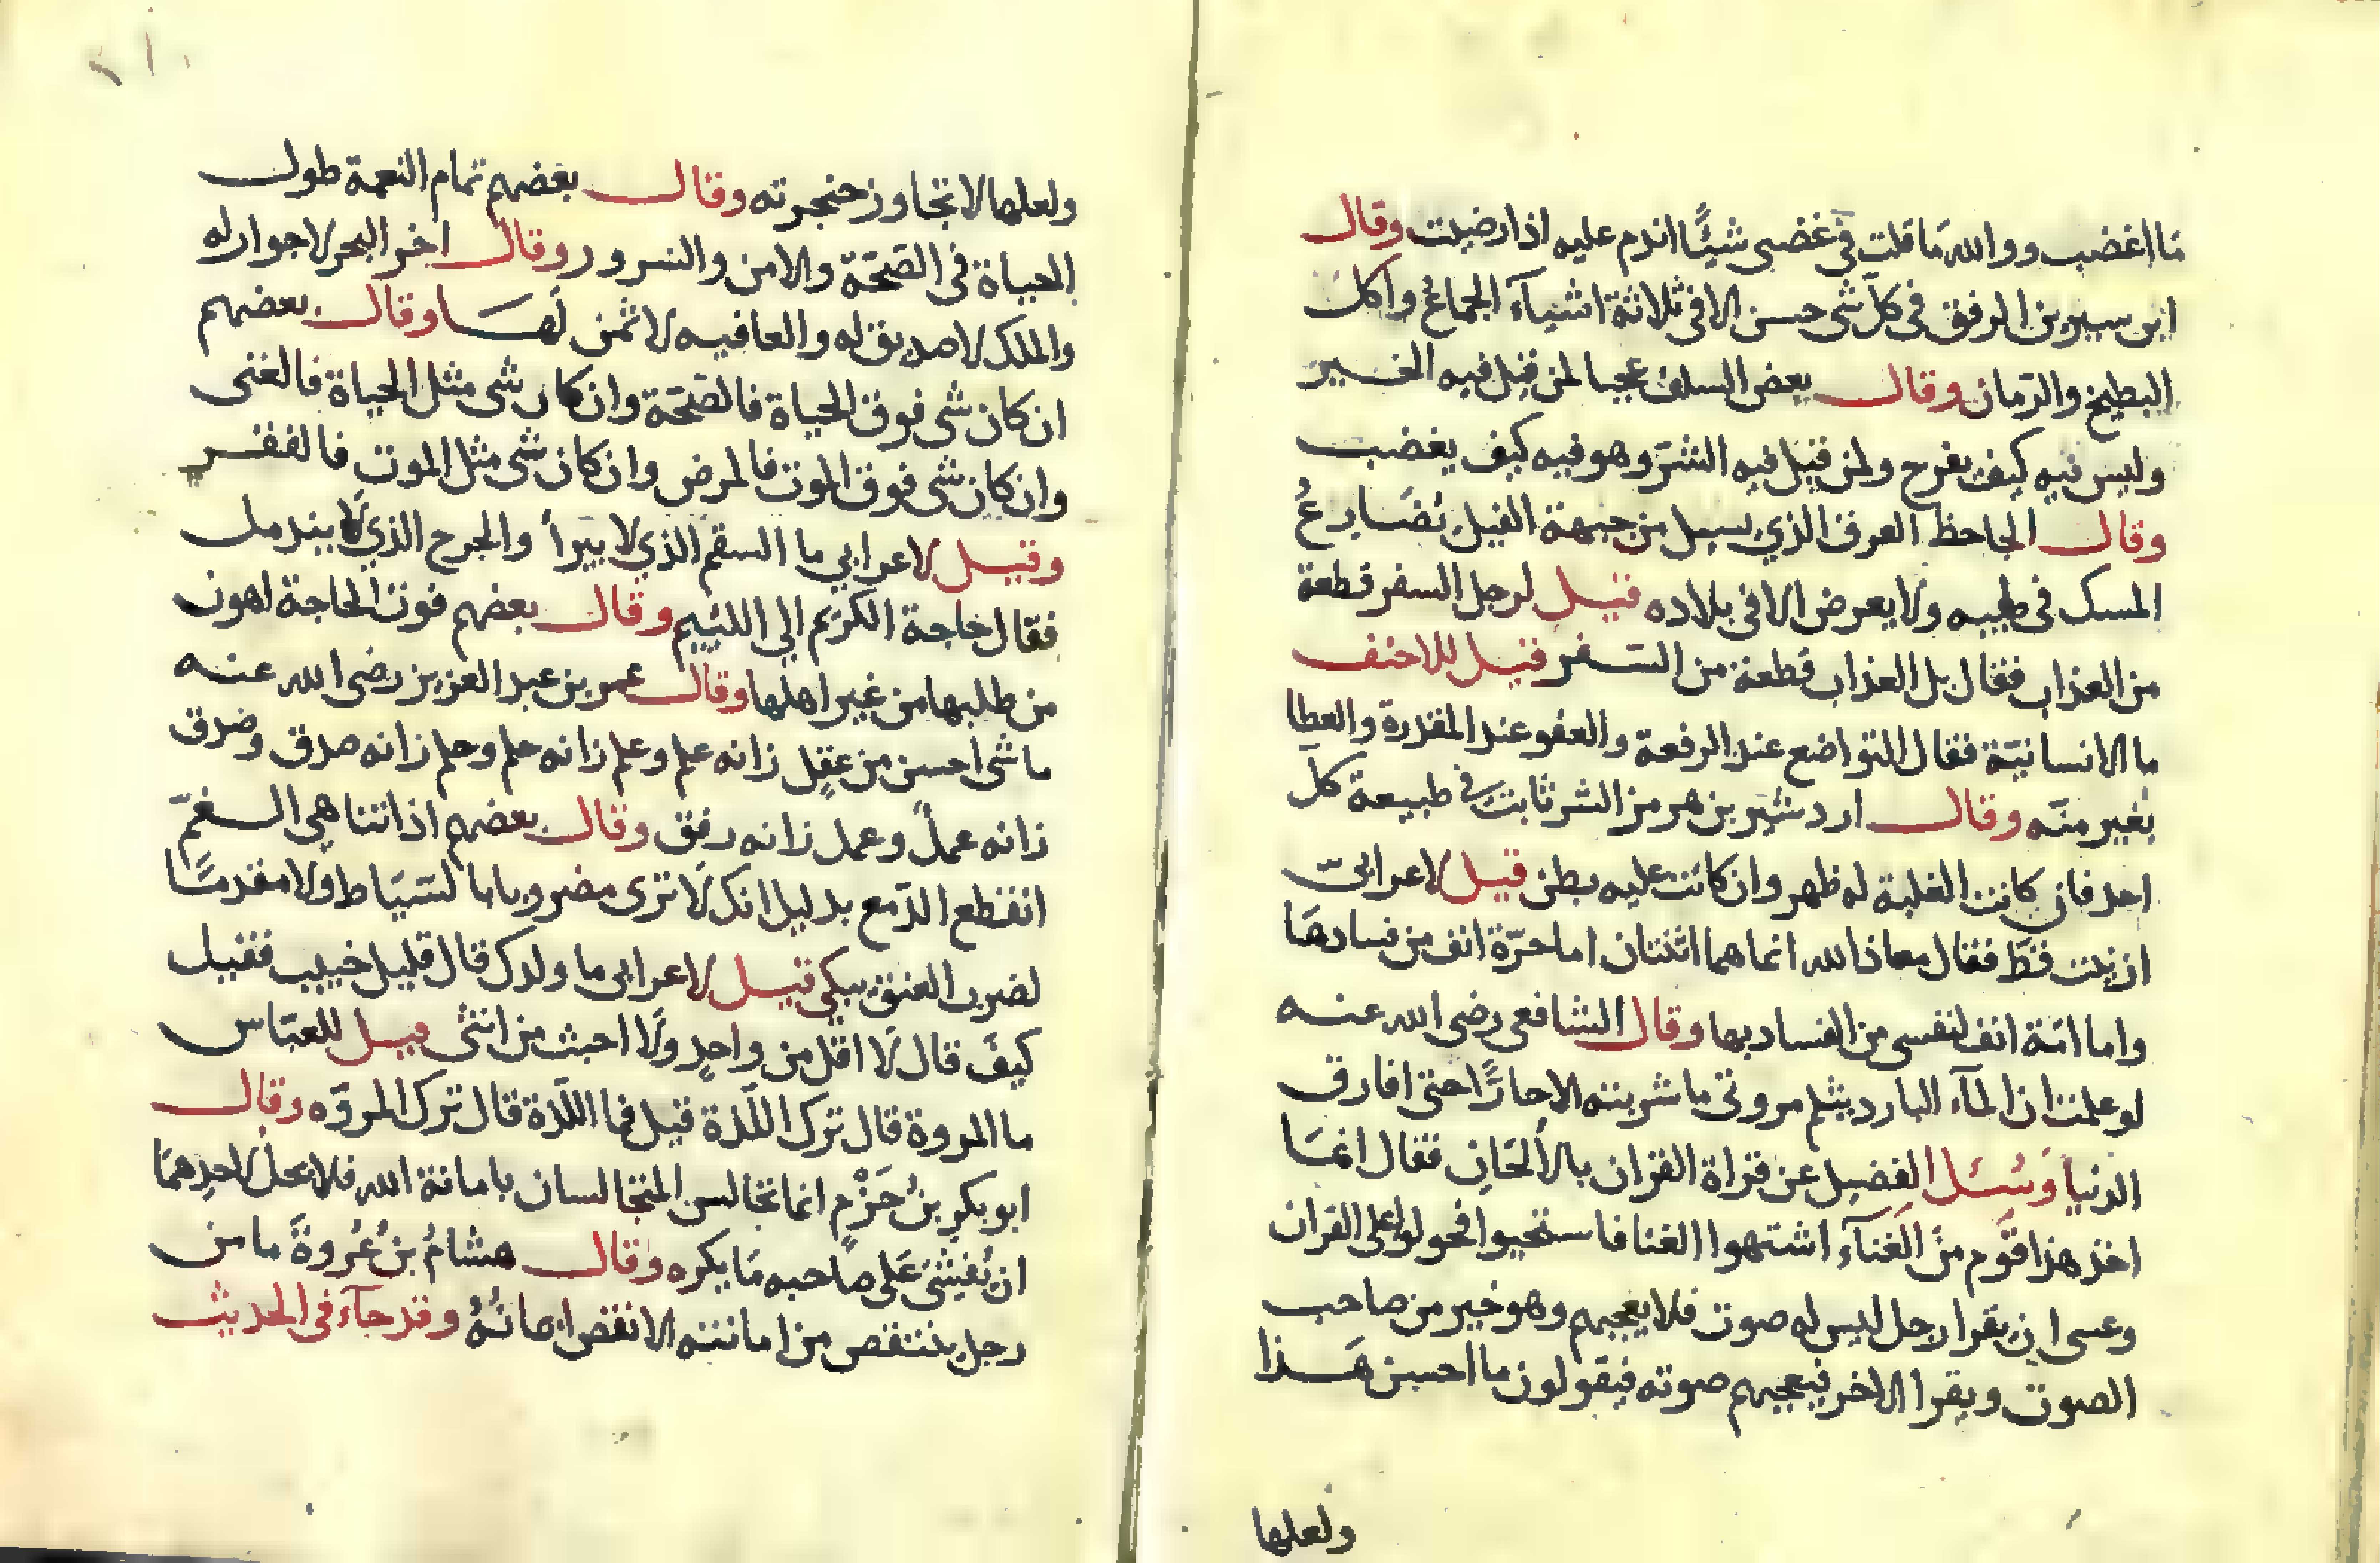 ما اغضب ووالله ما قلت في غضبى شيًا اندم عليه اذا رضيت وقال
ابن سيرين الرفق في كل شى حسن الا في ثلاثة اشياء الجماع واكل
البطيخ والرمان وقال بعض السلف عجبا لمن قيل فيه الخير
وليس فيه كيف يفرح ولمن قيل فيه الشر وهو فيه كيف يغضب
وقال الجاحظ العرق الذي يسيل من جبهة الفيل يُضَارعُ
المسك في طيبه ولا يعرض الا في بلاده قيل لرجل السفر قطعة
من العذاب فقال بل العذاب قطعة من السفر قيل للاحنف
ما الانسانيّة فقال التواضع عند الرفعة والعفو عند المقدرة والعطا
بغير منّه وقال اردشير بن هرمز الشر ثابت في طبيعة كل
احد فان كانت الغلبة له ظهر وان كانت عليه بطن قيل لاعرابىّ
ازنيت قطّ فقال معاذ الله انما هما اثنتان اما حرّة انف من فسادها
واما امَة انف لنفسى من الفساد بها وقال الشافعى رضى الله عنه
لو علمت ان الماء البارد يثلم مروتى ما شربته الا حارًّا حتى افارق
الدنيا وَسُئل الفضيل عن قراة القران بالألحَانِ فقال انما
اخذ هذا قوم من الغناء اشتهوا الغنا فاستحيوا فحولوا على القران
وعسى ان يقرا رجل ليس له صوت فلا يعجبهم وهو خير من صاحب
الصوت ويقرا الاخر فيعجبهم صوته فيقولون ما احسن هَذا
ولعلها
ولعلها لا تجاوز حنجرته وقال بعضهم تمام النعمة طول
الحياة في الصّحّة والامن والسرور وقال اخر البحر لا جوار له
والملك لا صديق له والعافيه لا ثمن لَهَا وقال بعضهم
ان كان شى فوق الحياة فالصّحّة وان كان شى مثل الحياة فالغنى
وان كان شى فوق الموت فالمرض وان كان شى مثل الموت فالفقر
وقيل لاعرابي ما السقم الذي لا يبرأ والجرح الذي لا يندمل
فقال حاجة الكريم الي اللئيم وقال بعضهم فوت الحاجة اهون
من طلبها من غير اهلها وقال عمر بن عبد العزيز رضى الله عنه
ما شى احسن من عقل زانه علم وعلم زانه حلم وحلم زانه صدق وصدق
زانه عمل وعمل زانه رفق وقال بعضهم اذا تناهى الغمّ
انقطع الدّمع بدليل انك لا ترى مضروبا بالسّيَاط ولا مقدمًا
لضرب العنق يبكي قيل لاعرابى ما ولدك قال قليل خبيب فقيل
كيفَ قال لَا اقل من واحدٍ ولَا اخبث من انثى قيل للعبّاس
ما المروة قال ترك اللّذة قيل فما اللّذة قال ترك المروّه وقال
ابو بكرِ بنُ حَزْمٍ انما تجالس المتجالسان بامانة الله فلا يحل لاحدِهمَا
ان يُفشىَ عَلى صَاحبه مَا يكره وقال هشامُ بنُ عُروةَ ما من
رجل ينتقص من امانته الا نقص ايمانُهُ وقد جآء في الحديث